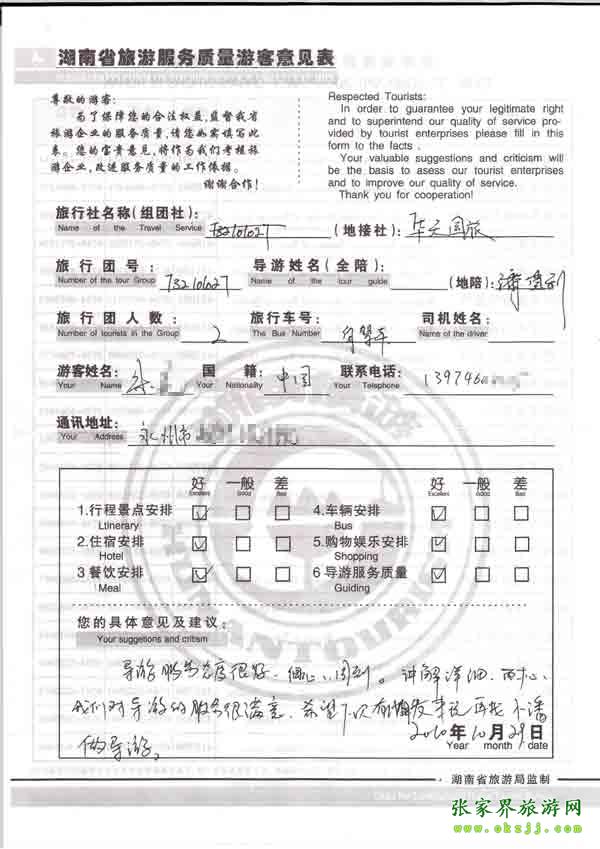 湖南省旅游服务质量游客意见表
尊敬的游客:
为了保障您的合法权益,监督我省
旅游企业的服务质量,请您如实填写此
表。您的宝贵意见,将作为我们考核旅
游企业,改进服务质量的工作依据。
谢谢合作!
Respected Tourists:
In order to guarantee your legitimate right
and to superintend our quality of service pro-
vided by tourist enterprises please fill in this
form to the facts .
Your valuable suggestions and criticism will
be the basis to asess our tourist enterprises
and to improve our quality of service.
Thank you for cooperation!
旅行社名称(组团社): 73210102T (地接社): 国旅
Name of the Travel Service
旅行团号: 导游姓名(全陪): (地陪):
Number of the tour Group Name of the tour guide
旅行团人数: 2 旅行车号: 司机姓名:
Number of tourists in the Group The Bus Number Name of the driver
游客姓名: 国籍: 中国 联系电话: 139746
Your Name Your Nationality Your Telephone
通讯地址: 永州市
Your Address
好 一般 差 好 一般 差
Excellent Good Bad Excellent Good Bad
1.行程景点安排 4.车辆安排
Ltinerary Bus
2.住宿安排 5.购物娱乐安排
Hotel Shopping
3 餐饮安排 6 导游服务质量
Meal Guiding
您的具体意见及建议:
Your suggetions and critism
导游服务态度很好、细心、周到。讲解详细、
我们对导游的服务很满意,希望下次有朋友来玩再找小潘
做导游。
2010年10月29日
Year month date
湖南省旅游局监制
张家界旅游网
www.okzjj.com